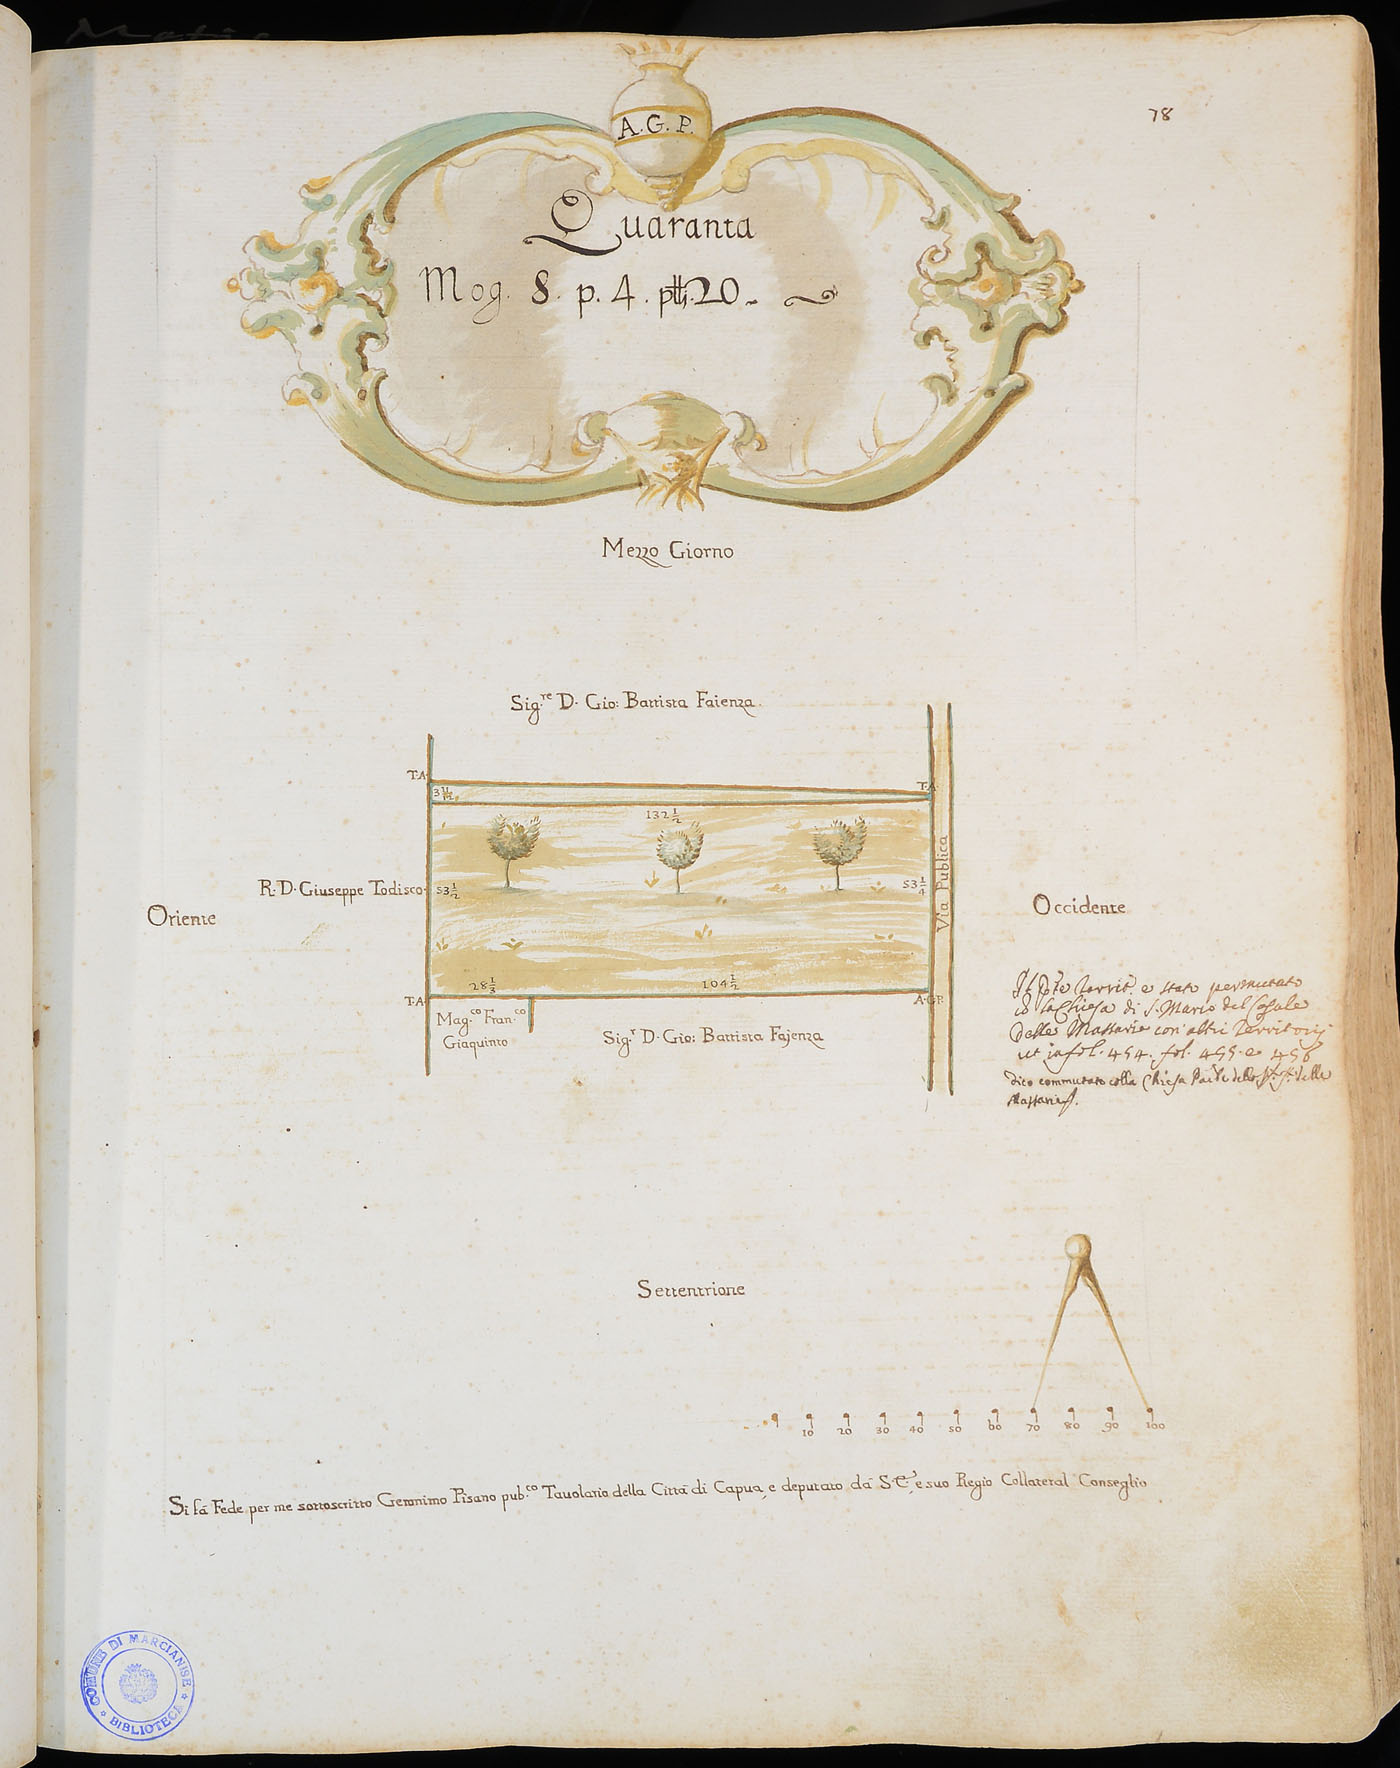 78
A. G. P.
Quaranta
Mog. 8. p. 4. ptti. 20.
Mezzo Giorno
Sig.re D. Gio: Battista Faienza.
T. A.
T. A.
3 11/12
132 1/2
R. D. Giuseppe Todisco
53 1/2
53 1/4
Via Publica
Oriente
Occidente
28 1/3
104 1/2
T. A.
A. G. P.
Mag.co Fran.co
Giaquinto
Sig.r D. Gio: Battista Fajenza
Il territ. è stato permutato
Chiesa di S. Maria del
delle Massarie con altri Territorij
ut infol. 454. fol. 455. e 456
dico commutato colla Chiesa delle
Massarie.
Settentrione
10 20 30 40 50 60 70 80 90 100
Si fà Fede per me sottoscritto Geronimo Pisano pub.co Tavolario della Città di Capua, e deputato dà S. E. e suo Regio Collateral Conseglio
COMUNE DI MARCIANISE
BIBLIOTECA